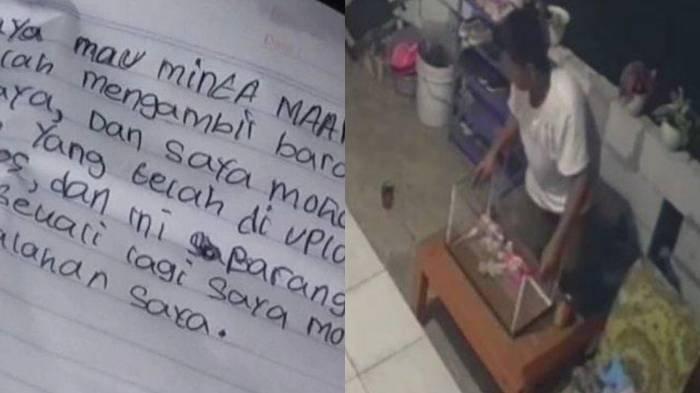 mau minta MAA
mengambil bara
aya, Dan saya moho
Yang telah di uplo
, dan ini Barang
sekali lagi saya mo
alahan saya.